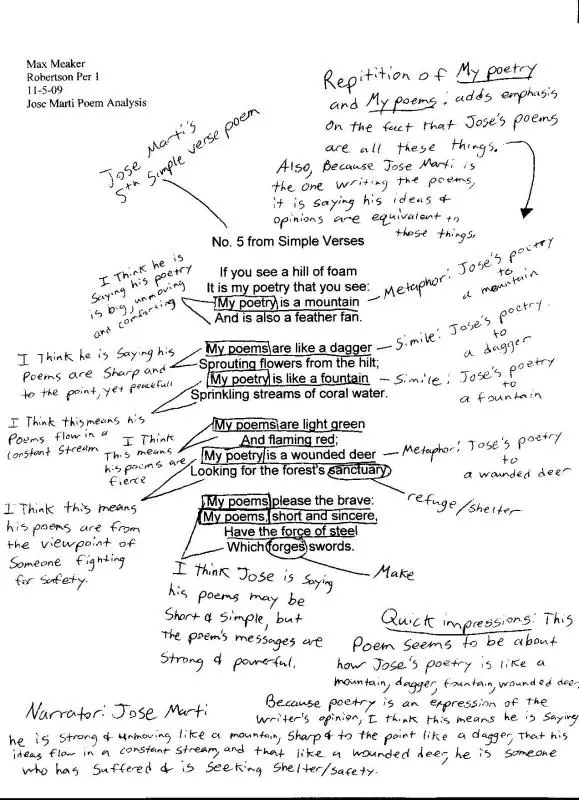 Max Meaker
Robertson Per 1
11-5-09
Jose Marti Poem Analysis
Repitition of My poetry
and My poems: adds emphasis
on the fact that Jose's poems
are all these things.
Also, Because Jose Marti is
the one writing the poems,
it is saying his ideas &
opinions are equivalent to
those things.
Jose Marti's
5th simple verse poem
No. 5 from Simple Verses
If you see a hill of foam
It is my poetry that you see:
My poetry is a mountain
And is also a feather fan.
I Think he is
Saying his poetry
is big, unmoving
and comforting
Metaphor: Jose's poetry
to
a mountain
My poems are like a dagger
Sprouting flowers from the hilt;
My poetry is like a fountain
Sprinkling streams of coral water.
I Think he is Saying his
Poems are Sharp and
to the point, yet peacefull
Simile: Jose's poetry
to
a dagger
Simile: Jose's poetry
to
a fountain
I Think this means his
Poems flow in a
Constant Stream
My poems are light green
And flaming red;
My poetry is a wounded deer
Looking for the forest's sanctuary.
I Think
This means
his poems are
fierce
Metaphor: Jose's poetry
to
a wounded deer
refuge/shelter
I Think this means
his poems are from
the viewpoint of
Someone fighting
for safety.
My poems please the brave:
My poems, short and sincere,
Have the force of steel
Which forges swords.
Make
I think Jose is saying
his poems may be
Short & Simple, but
the poem's messages are
Strong & powerful.
Quick impressions: This
Poem seems to be about
how Jose's poetry is like a
mountain, dagger, fountain, wounded deer.
Because poetry is an expression of the
writer's opinion, I think this means he is Saying
Narrator: Jose Marti
he is strong & unmoving like a mountain, Sharp & to the point like a dagger, that his
ideas flow in a constant stream, and that like a wounded deer, he is someone
who has Suffered & is Seeking Shelter/Safety.